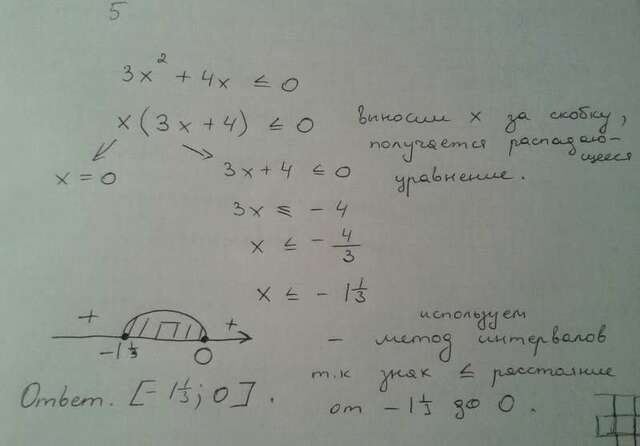 5
3x² + 4x ≤ 0
x(3x+4) ≤ 0
выносим x за скобку,
получается распадаю-
щееся
уравнение.
x = 0
3x+4 ≤ 0
3x ≤ -4
x ≤ -4/3
x ≤ -1 1/3
+ +
-1 1/3 0
используем
- метод интервалов
т.к знак ≤ расстояние
от -1 1/3 до 0.
Ответ. [-1 1/3; 0].